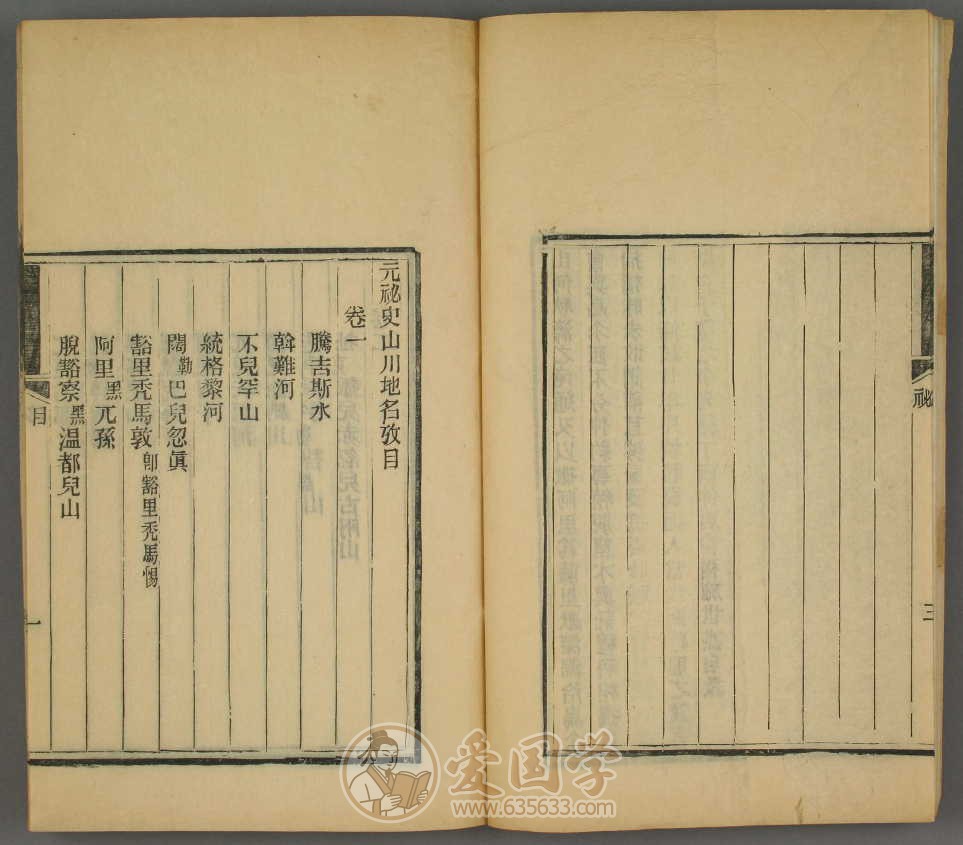 祕
三
元祕史山川地名攷目
卷一
騰吉斯水
斡難河
不兒罕山
統格黎河
闊勒巴兒忽眞
豁里禿馬敦卽豁里禿馬惕
阿里黑兀孫
脫豁察黑温都兒山
目
一
爱国学
www.635633.com